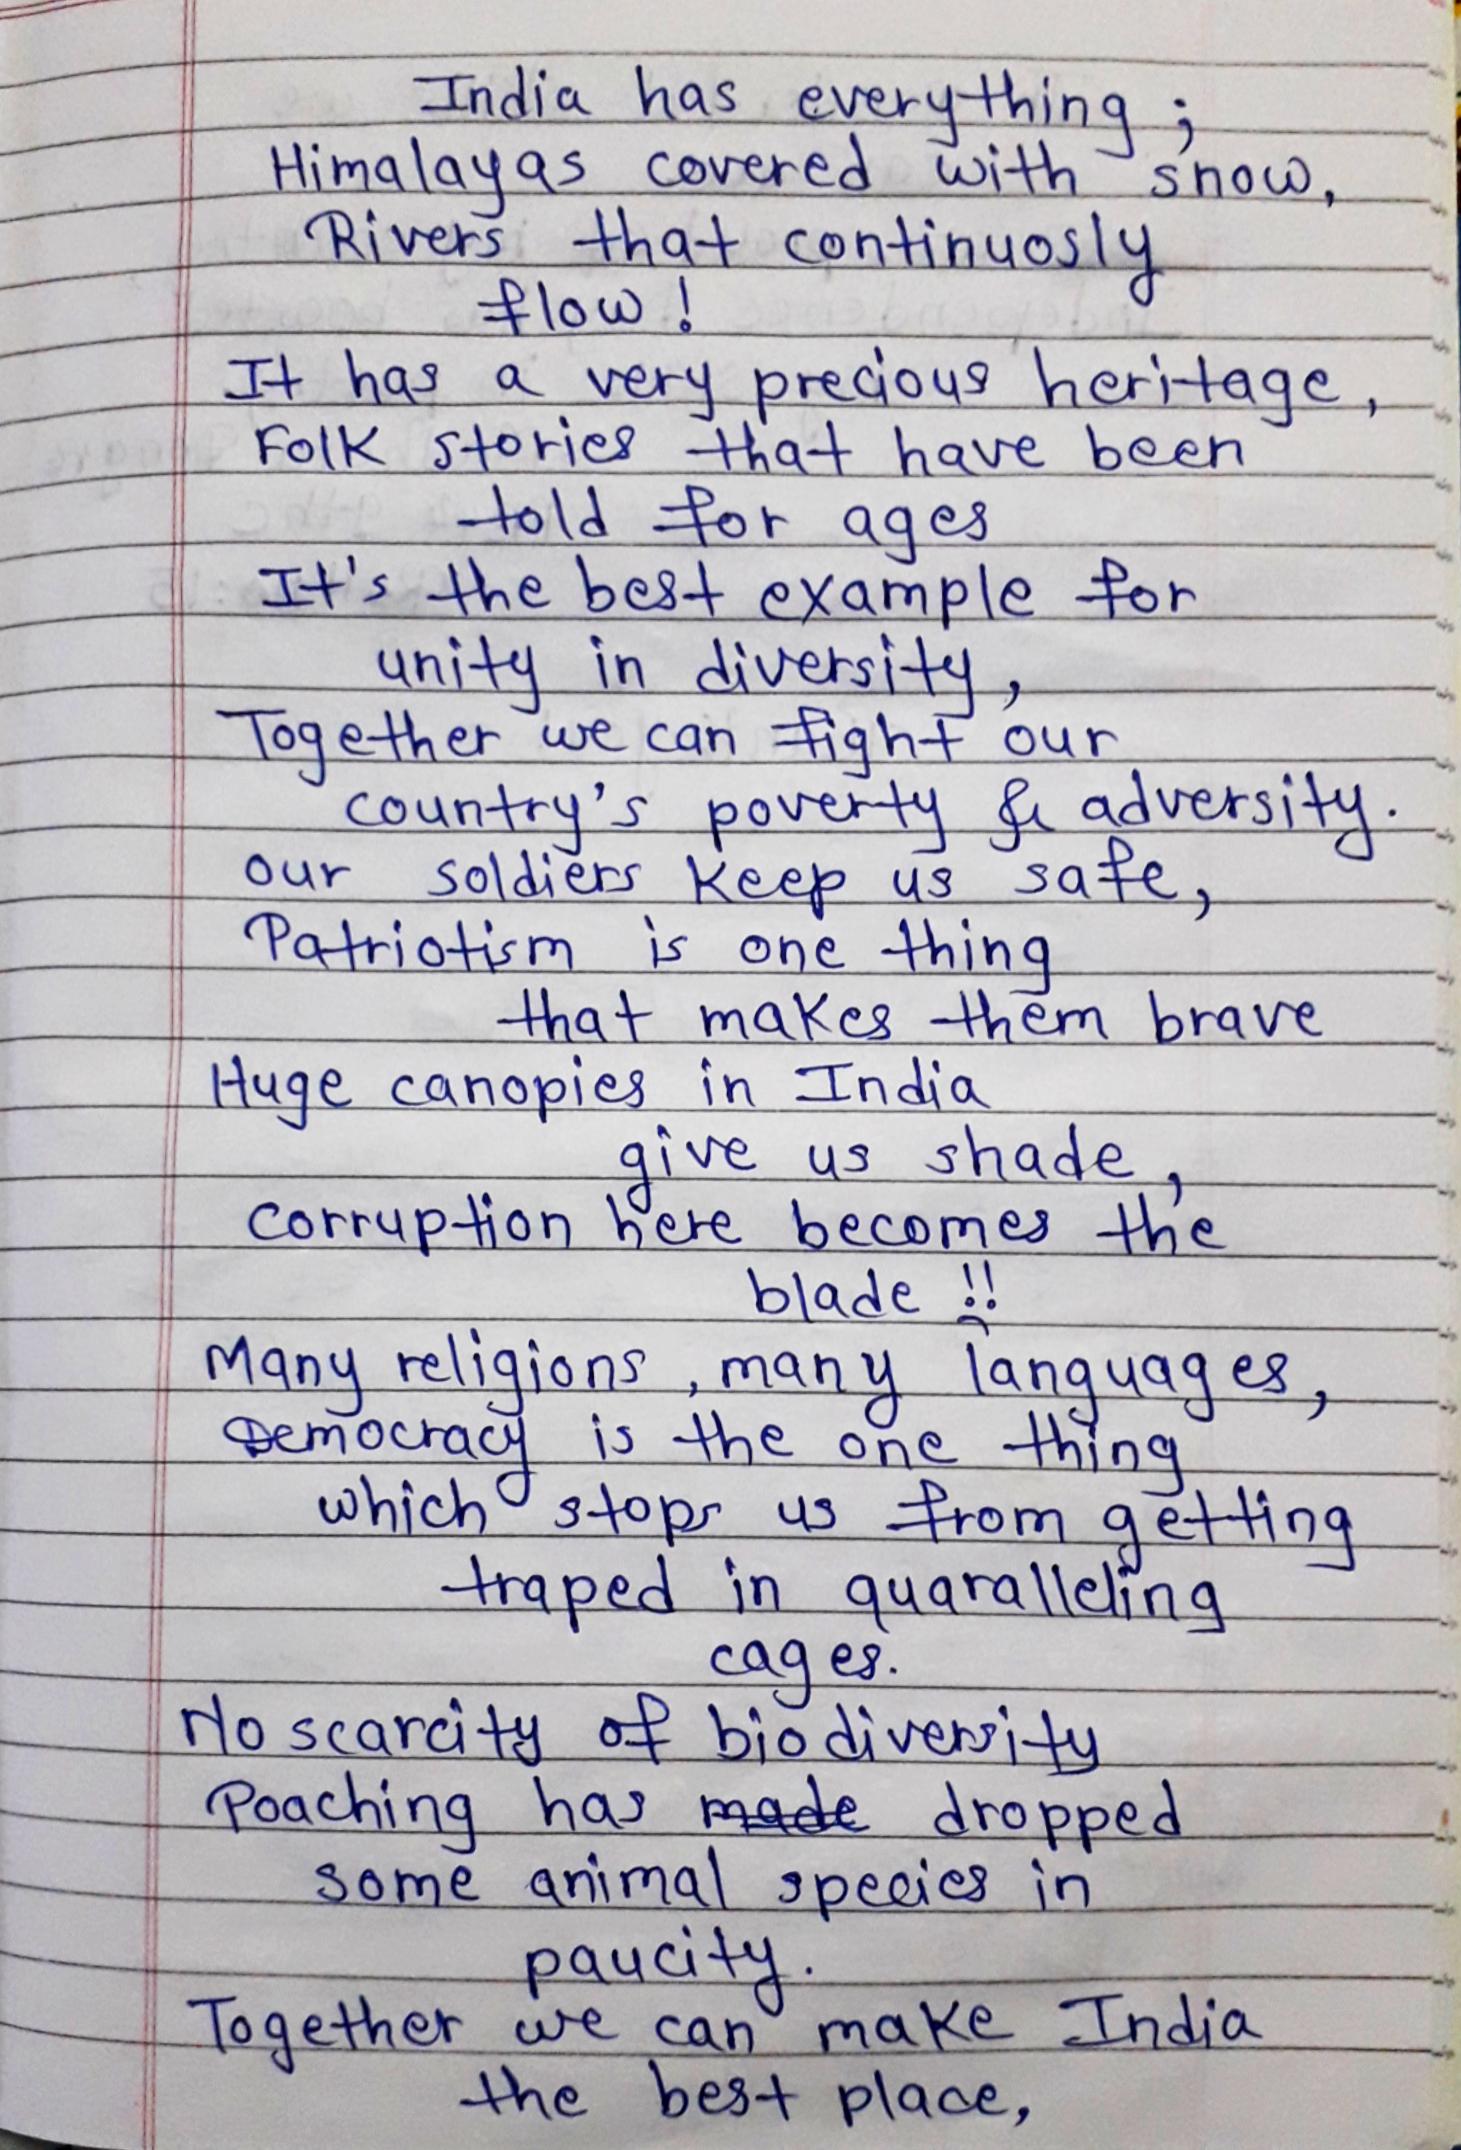 India has everything ;
Himalayas covered with snow,
Rivers that continuosly
flow !
It has a very precious heritage,
Folk stories that have been
told for ages
It's the best example for
unity in diversity,
Together we can fight our
country's poverty & adversity.
our soldiers keep us safe,
Patriotism is one thing
that makes them brave
Huge canopies in India
give us shade,
corruption here becomes the
blade !!
Many religions, many languages,
Democracy is the one thing
which stops us from getting
traped in quaralleling
cages.
No scarcity of biodiversity
Poaching has made dropped
some animal species in
paucity.
Together we can make India
the best place,